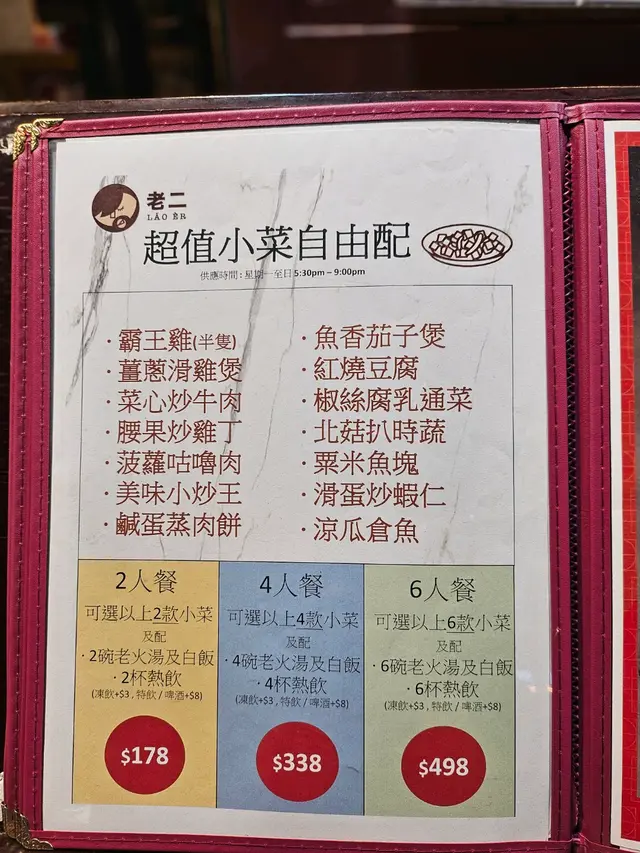 老二
LǍO ÈR
超值小菜自由配
供應時間：星期一至日 5:30pm – 9:00pm
·霸王雞(半隻)
·薑蔥滑雞煲
·菜心炒牛肉
·腰果炒雞丁
·菠蘿咕嚕肉
·美味小炒王
·鹹蛋蒸肉餅
·魚香茄子煲
·紅燒豆腐
·椒絲腐乳通菜
·北菇扒時蔬
·粟米魚塊
·滑蛋炒蝦仁
·涼瓜倉魚
2人餐
可選以上2款小菜
及配
·2碗老火湯及白飯
·2杯熱飲
(凍飲+$3 , 特飲 / 啤酒+$8)
$178
4人餐
可選以上4款小菜
及配
·4碗老火湯及白飯
·4杯熱飲
(凍飲+$3 , 特飲 / 啤酒+$8)
$338
6人餐
可選以上6款小菜
及配
·6碗老火湯及白飯
·6杯熱飲
(凍飲+$3 , 特飲 / 啤酒+$8)
$498